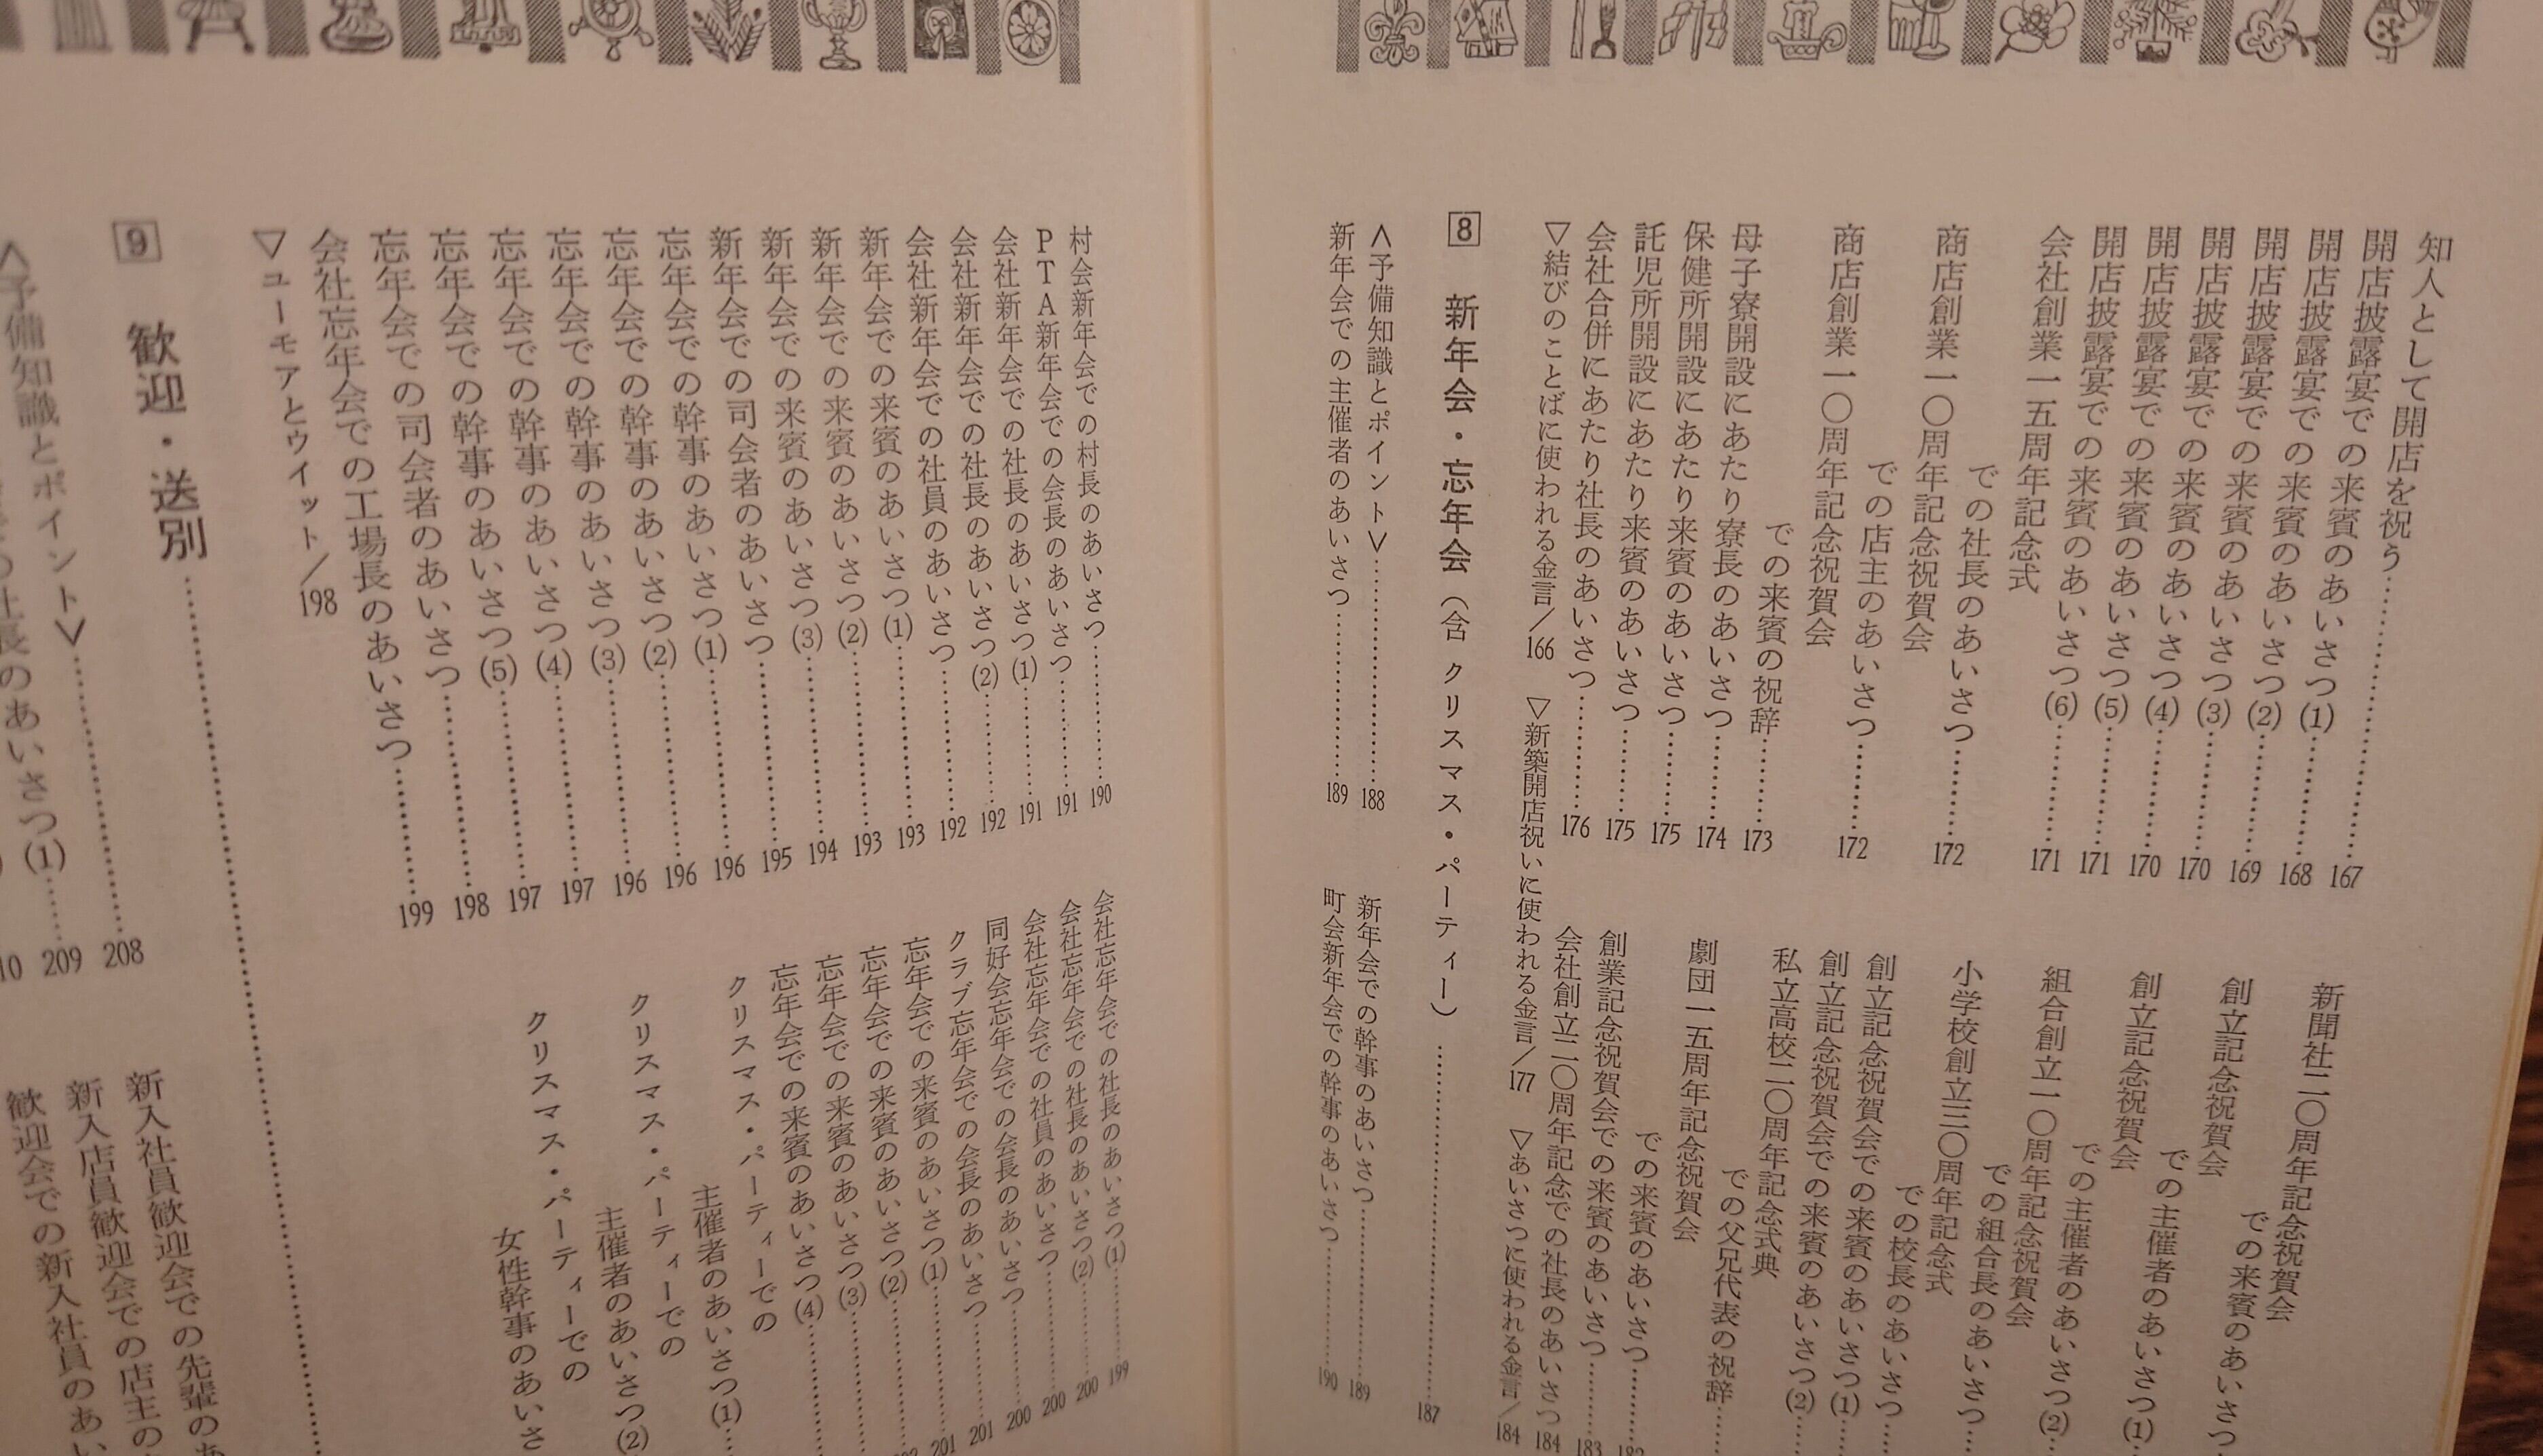 知人として開店を祝う……167
開店披露宴での来賓のあいさつ(1)……168
開店披露宴での来賓のあいさつ(2)……169
開店披露宴での来賓のあいさつ(3)……170
開店披露宴での来賓のあいさつ(4)……170
開店披露宴での来賓のあいさつ(5)……171
開店披露宴での来賓のあいさつ(6)……171
会社創業一五周年記念式
での社長のあいさつ……172
商店創業一〇周年記念祝賀会
での店主のあいさつ……172
商店創業一〇周年記念祝賀会
での来賓の祝辞……173
母子寮開設にあたり寮長のあいさつ……174
保健所開設にあたり来賓のあいさつ……175
託児所開設にあたり来賓のあいさつ……175
会社合併にあたり社長のあいさつ……176
新聞社二〇周年記念祝賀会
での来賓のあいさつ
創立記念祝賀会
での主催者のあいさつ(1)
創立記念祝賀会
での主催者のあいさつ(2)
組合創立一〇周年記念祝賀会
での組合長のあいさつ
小学校創立三〇周年記念式
での校長のあいさつ
創立記念祝賀会での来賓のあいさつ(1)
創立記念祝賀会での来賓のあいさつ(2)
私立高校二〇周年記念式典
での父兄代表の祝辞
劇団一五周年記念祝賀会
での来賓のあいさつ
創業記念祝賀会での来賓のあいさつ……183
会社創立二〇周年記念での社長のあいさつ 184
▽結びのことばに使われる金言／166 ▽新築開店祝いに使われる金言／177 ▽あいさつに使われる金言／184
8 新年会・忘年会（含 クリスマス・パーティー）……187
＜予備知識とポイント＞……188
新年会での主催者のあいさつ……189
新年会での幹事のあいさつ……189
町会新年会での幹事のあいさつ……190
村会新年会での村長のあいさつ……190
PTA新年会での会長のあいさつ……191
会社新年会での社長のあいさつ(1)……191
会社新年会での社長のあいさつ(2)……192
会社新年会での社員のあいさつ……192
新年会での来賓のあいさつ(1)……193
新年会での来賓のあいさつ(2)……193
新年会での来賓のあいさつ(3)……194
新年会での司会者のあいさつ……195
忘年会での幹事のあいさつ(1)……196
忘年会での幹事のあいさつ(2)……196
忘年会での幹事のあいさつ(3)……196
忘年会での幹事のあいさつ(4)……197
忘年会での幹事のあいさつ(5)……197
忘年会での司会者のあいさつ……198
会社忘年会での工場長のあいさつ……199
会社忘年会での社長のあいさつ(1)……199
会社忘年会での社長のあいさつ(2)……200
会社忘年会での社員のあいさつ……200
同好会忘年会での会長のあいさつ……200
クラブ忘年会での会長のあいさつ……201
忘年会での来賓のあいさつ(1)……201
忘年会での来賓のあいさつ(2)
忘年会での来賓のあいさつ(3)
忘年会での来賓のあいさつ(4)
クリスマス・パーティーでの
主催者のあいさつ(1)
クリスマス・パーティーでの
主催者のあいさつ(2)
クリスマス・パーティーでの
女性幹事のあいさ
▽ユーモアとウイット／198
9 歓迎・送別
＜予備知識とポイント＞……208
社長のあいさつ(1)……209
新入社員歓迎会での先輩のあ
新入店員歓迎会での店主の
歓迎会での新入社員のあい